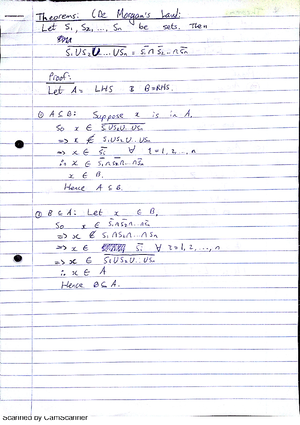 Theorems: (De Morgan's Law):
Let S₁, S₂, ..., Sₙ be sets. Then
S₁US₂U...USₙ = S̅₁∩S̅₂...∩S̅ₙ
Proof:
Let A = LHS & B=RHS.
① A ⊆ B: Suppose x is in A.
So x ∈ S₁US₂U...USₙ
=> x ∉ S₁US₂U...USₙ
=> x ∈ S̅ᵢ ∀ i=1,2,..,n
∴ x ∈ S̅₁∩S̅₂∩...∩S̅ₙ
x ∈ B.
Hence A ⊆ B.
② B ⊆ A: Let x ∈ B,
So x ∈ S̅₁∩S̅₂∩...∩S̅ₙ
=> x ∉ S₁∩S₂∩...∩Sₙ
=> x ∈ S̅ᵢ ∀ i=1,2,...,n
=> x ∈ S₁US₂U...USₙ
∴ x ∈ A
Hence B⊆A.
Scanned by CamScanner